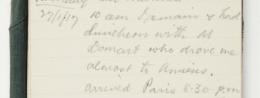 27/1/17 10 am Germain & Ford
Luncheon with M
Domart who drove me
almost to Amiens.
arrived Paris 8.30 pm